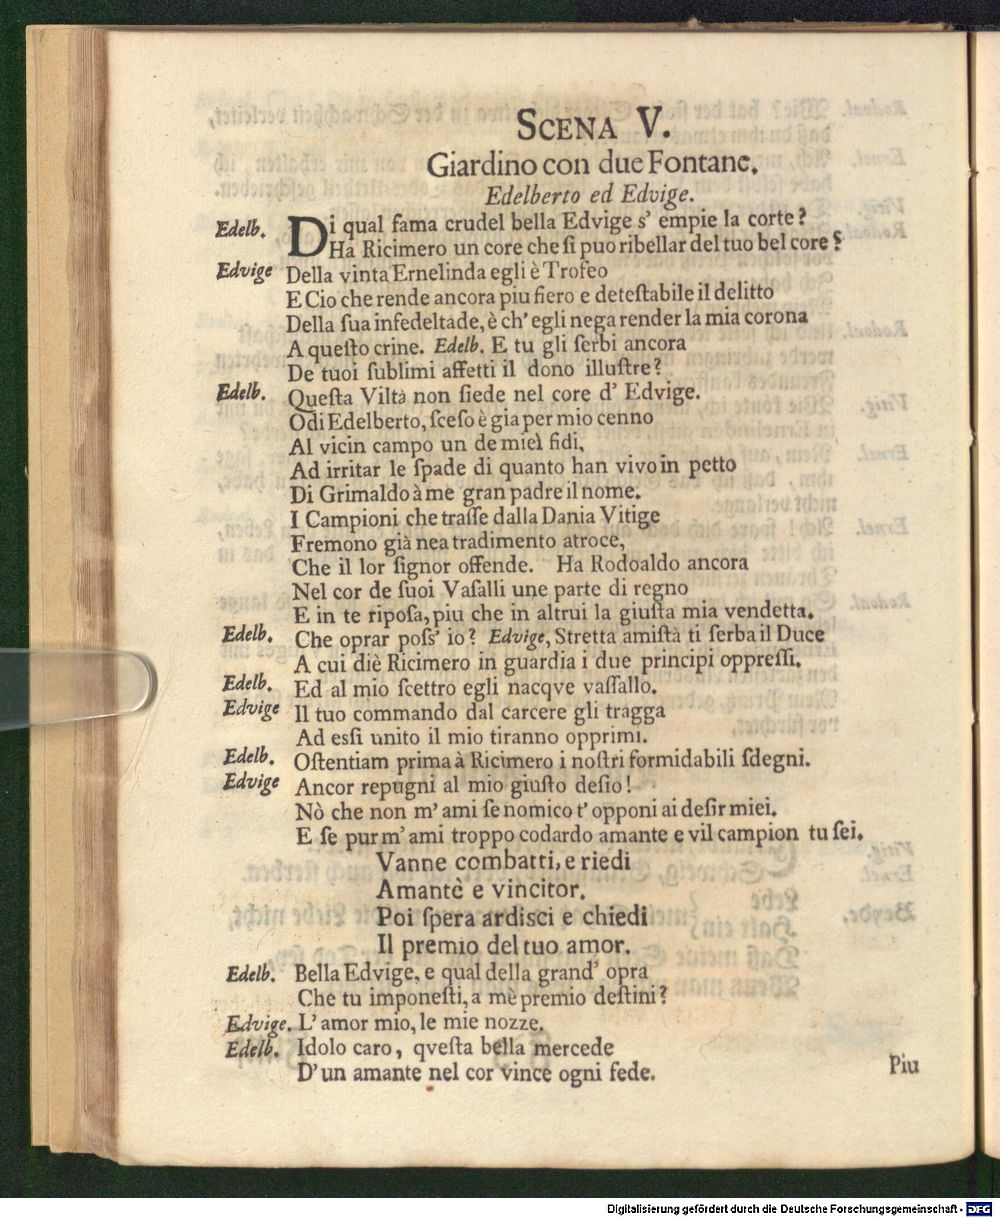 SCENA V.
Giardino con due Fontane.
Edelberto ed Edvige.
Edelb. Di qual fama crudel bella Edvige s' empie la corte?
Ha Ricimero un core che ſi puo ribellar del tuo bel core?
Edvige Della vinta Ernelinda egli è Trofeo
E Cio che rende ancora piu fiero e deteſtabile il delitto
Della ſua infedeltade, è ch' egli nega render la mia corona
A queſto crine. Edelb. E tu gli ſerbi ancora
De tuoi ſublimi affetti il dono illuſtre?
Edelb. Queſta Viltà non ſiede nel core d' Edvige.
Odi Edelberto, ſceſo è gia per mio cenno
Al vicin campo un de miei fidi,
Ad irritar le ſpade di quanto han vivo in petto
Di Grimaldo à me gran padre il nome.
I Campioni che traſſe dalla Dania Vitige
Fremono già nea tradimento atroce,
Che il lor ſignor offende. Ha Rodoaldo ancora
Nel cor de ſuoi Vaſalli une parte di regno
E in te ripoſa, piu che in altrui la giuſta mia vendetta.
Edelb. Che oprar poſs' io? Edvige, Stretta amiſtà ti ſerba il Duce
A cui diè Ricimero in guardia i due principi oppreſſi.
Edelb. Ed al mio ſcettro egli nacqve vaſſallo.
Edvige Il tuo commando dal carcere gli tragga
Ad eſsi unito il mio tiranno opprimi.
Edelb. Oſtentiam prima à Ricimero i noſtri formidabili ſdegni.
Edvige Ancor repugni al mio giuſto deſio!
Nò che non m' ami ſe nomico t' opponi ai deſir miei.
E ſe pur m' ami troppo codardo amante e vil campion tu ſei.
Vanne combatti, e riedi
Amantè e vincitor.
Poi ſpera ardisci e chiedi
Il premio del tuo amor.
Edelb. Bella Edvige, e qual della grand' opra
Che tu imponeſti, a mè premio deſtini?
Edvige. L' amor mio, le mie nozze.
Edelb. Idolo caro, qveſta bella mercede
D' un amante nel cor vince ogni fede.
Piu
Digitalisierung gefördert durch die Deutsche Forschungsgemeinschaft - DFG